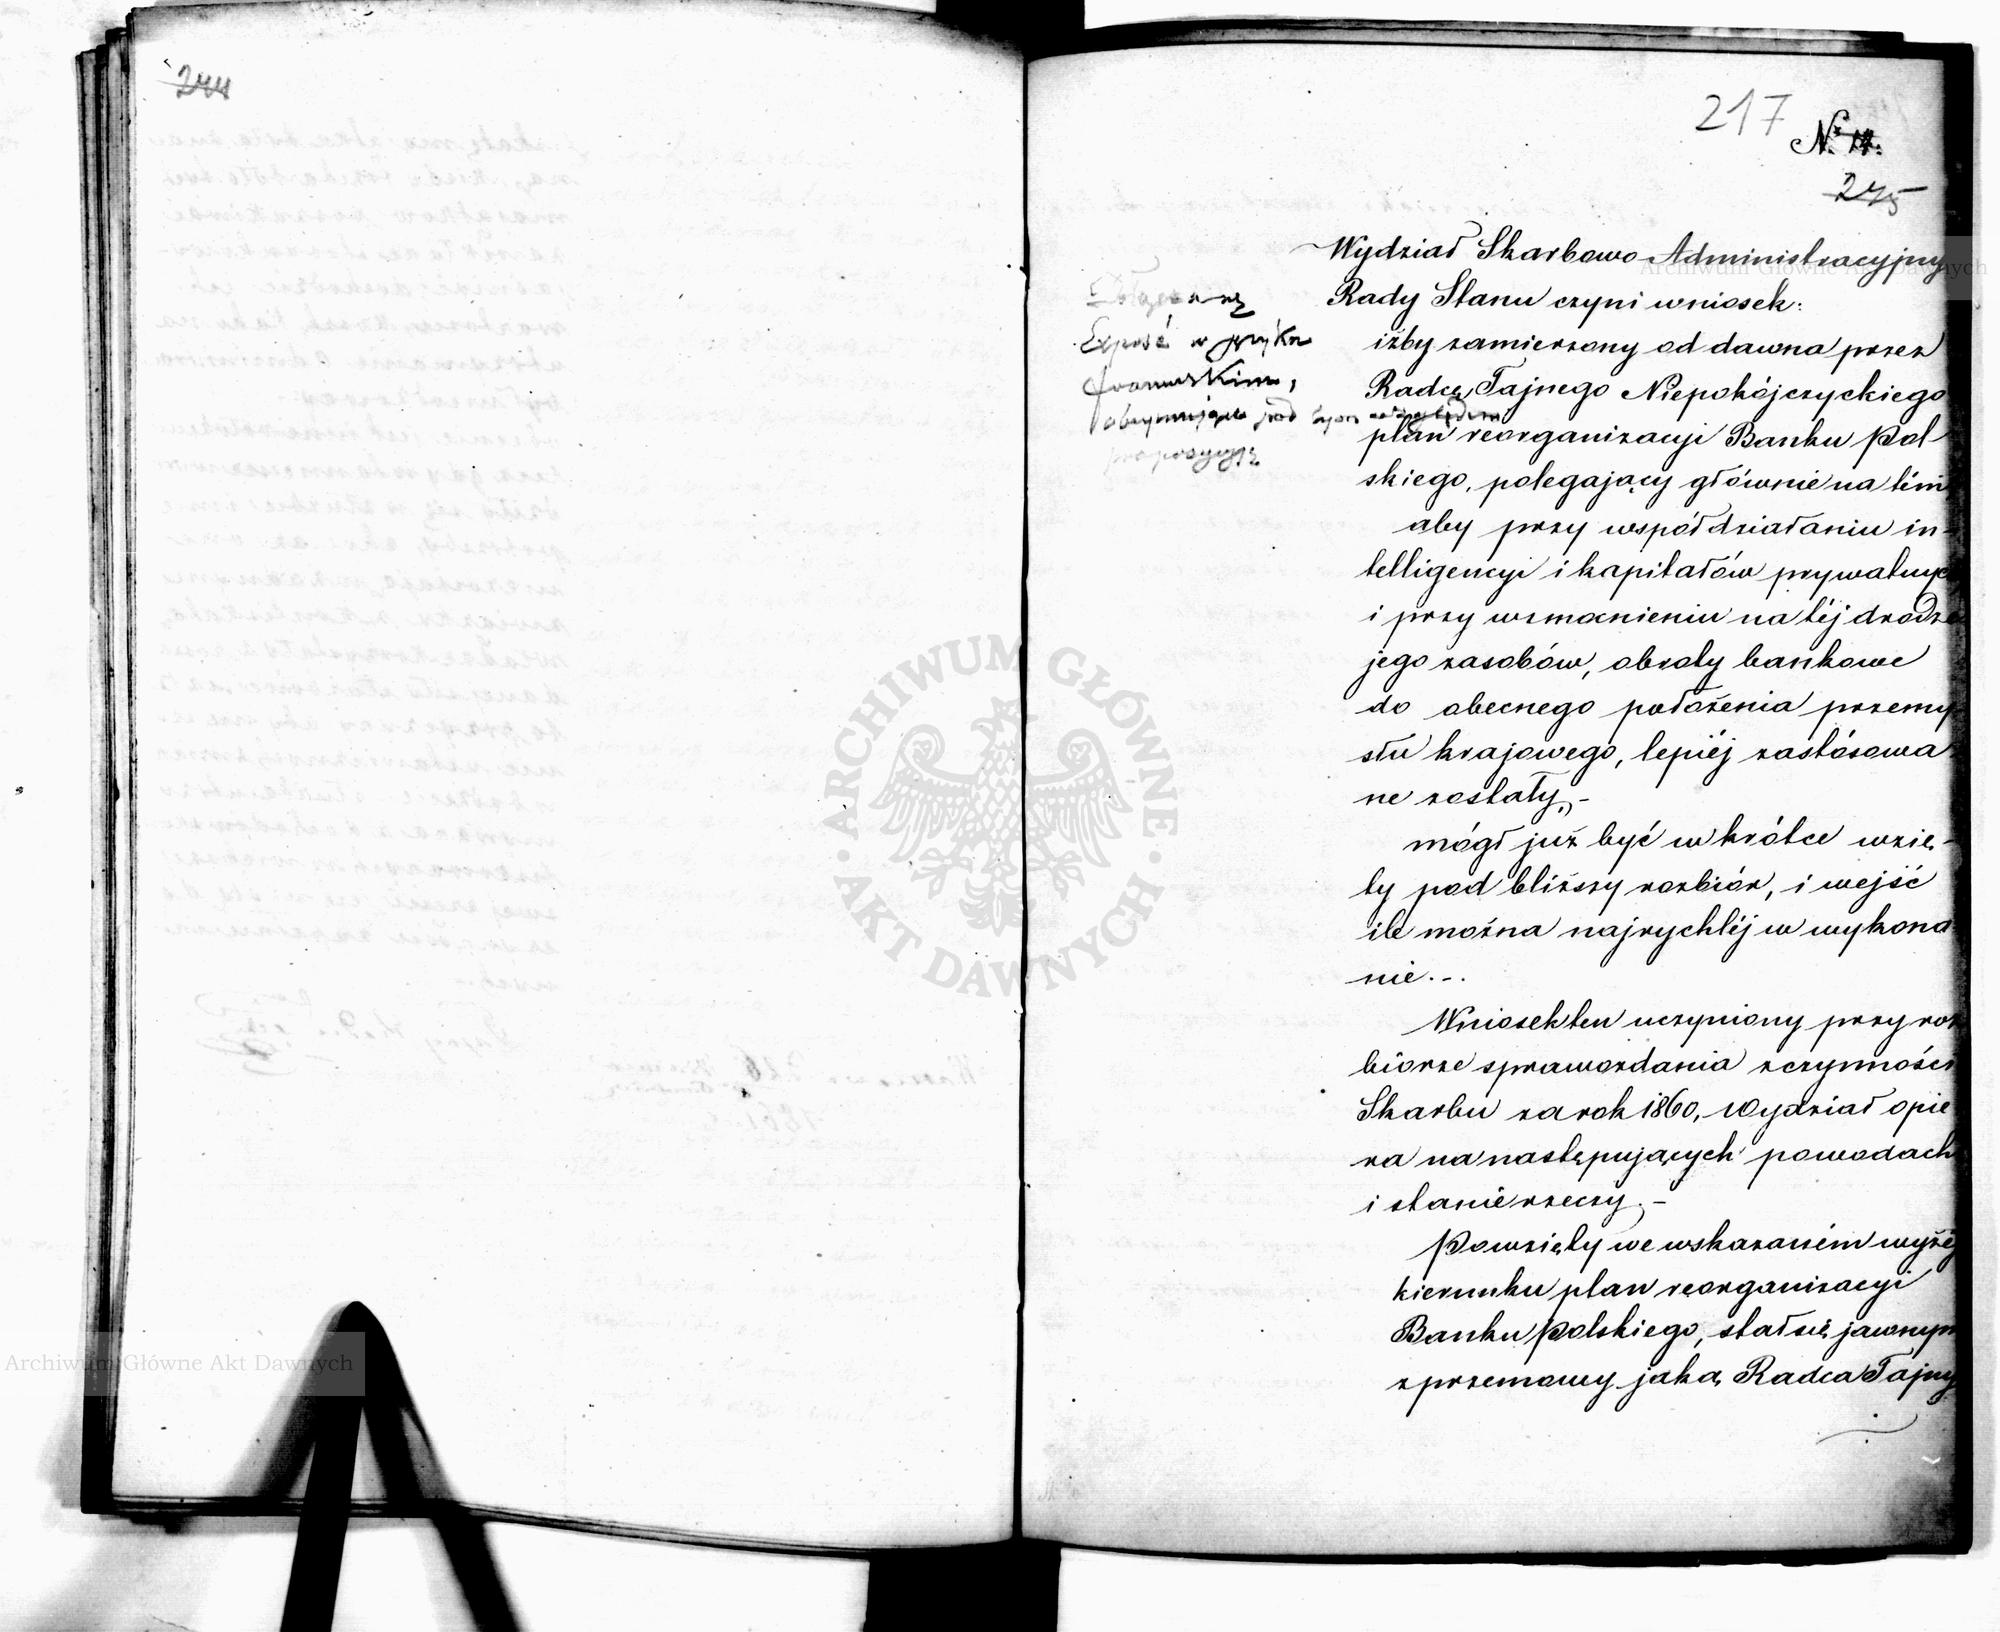 244
217
Nr 14.
245
Wydział Skarbowo-Administracyjny
Rady Stanu czyni wniosek:
iżby zamierzony od dawna przez
Radcę Tajnego Niepokójczyckiego
plan reorganizacyi Banku Pol-
skiego, polegający głównie na tém,
aby przy współdziałaniu in-
telligencyi i kapitałów prywatnych
i przy wzmocnieniu na téj drodze
jego zasobów, obroty bankowe
do obecnego położenia przemy-
słu krajowego, lepiéj zastósowa-
ne zostały,-
mógł już być w krótce wzię-
ty pod bliższy rozbiór, i wejść
ile można najrychléj w wykona
nie.-.
Wniosek ten uczyniony przy roz
biorze sprawozdania z czynności
Skarbu za rok 1860, Wydział opie
ra na następujących powodach
i stanie rzeczy.-
Powzięty we wskazaném wyżéj
kierunku plan reorganizacyi
Banku Polskiego, stał się jawnym
z przemowy jaką Radca Tajny
Exposé w języku
francuskim,
obejmujące pod tym względem
propozycyję
ARCHIWUM GŁÓWNE AKT DAWNYCH
Archiwum Główne Akt Dawnych
Archiwum Główne Akt Dawnych